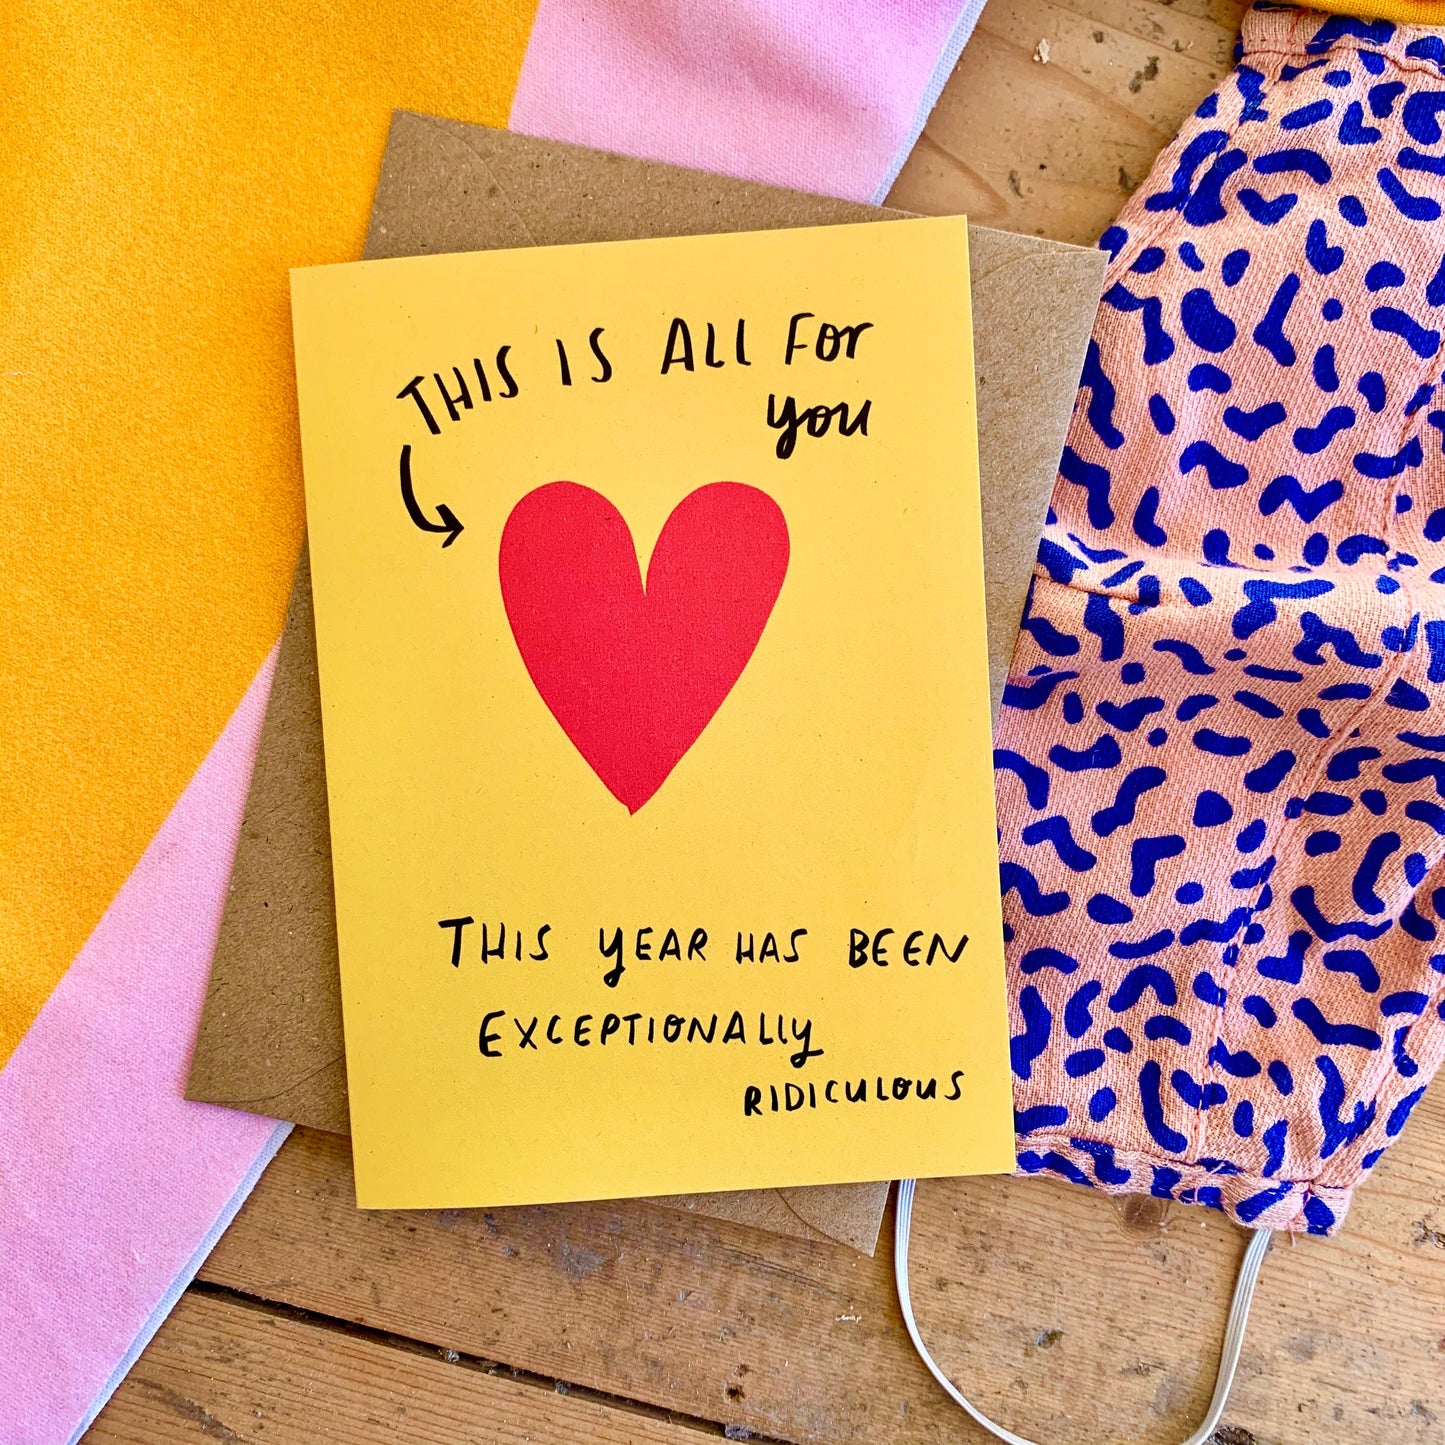 THIS IS ALL FOR
you
THIS YEAR HAS BEEN
EXCEPTIONALLY
RIDICULOUS